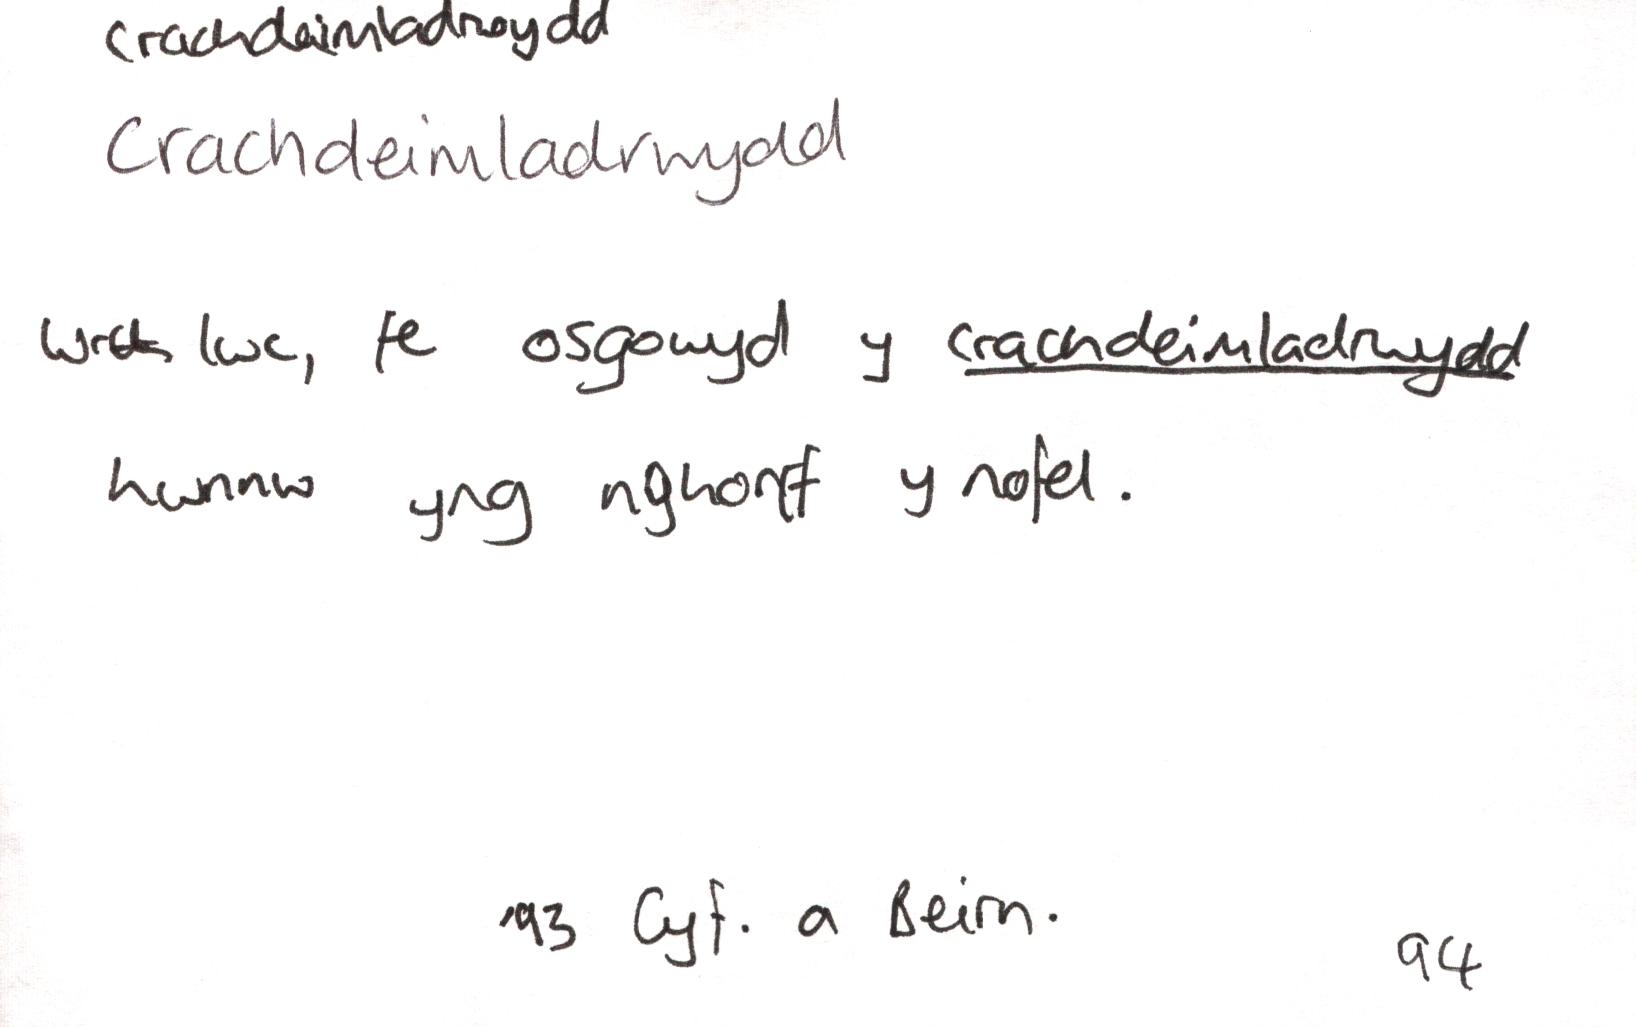 crachdeimladrwydd
Crachdeimladrwydd
Wrth lwc, fe osgowyd y crachdeimladrwydd
hwnnw yng nghorff y nofel.
'93 Cyf. a Beirn.
94